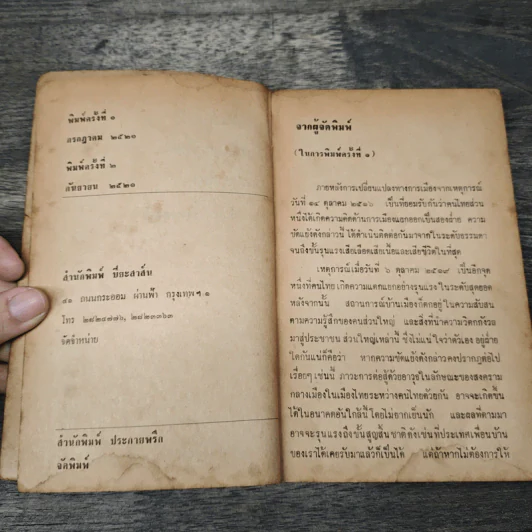 พิมพ์ครั้งที่ ๑
กรกฎาคม ๒๕๒๑
พิมพ์ครั้งที่ ๒
กันยายน ๒๕๒๑
สำนักพิมพ์ ปิยะสาส์น
ถนนกระออม ผ่านฟ้า กรุงเทพฯ ๑
โทร
จัดจำหน่าย
สำนักพิมพ์ ประกายพรึก
จัดพิมพ์
จากผู้จัดพิมพ์
(ในการพิมพ์ครั้งที่ ๑)
ภายหลังการเปลี่ยนแปลงทางการเมืองจากเหตุการณ์
วันที่ ๑๔ ตุลาคม ๒๕๑๖ เป็นที่ยอมรับกันว่าคนไทยส่วน
หนึ่งได้เกิดความคิดด้านการเมืองแยกออกเป็นสองฝ่าย ความ
ขัดแย้งดังกล่าวนี้ ได้ดำเนินติดต่อกันมาจากในระดับธรรมดา
จนถึงขั้นรุนแรงเสียเลือดเสียเนื้อและเสียชีวิตในที่สุด
เหตุการณ์เมื่อวันที่ ๖ ตุลาคม ๒๕๑๙ เป็นอีกจุด
หนึ่งที่คนไทย เกิดความแตกแยกอย่างรุนแรง ในระดับสุดยอด
หลังจากนั้น สถานการณ์บ้านเมืองก็ตกอยู่ ในความสับสน
ตามความรู้สึกของคนส่วนใหญ่ และสิ่งที่ทำความวิตกกังวล
มาสู่ประชาชน ส่วนใหญ่เหล่านี้ ซึ่งไม่แน่ ใจว่าตัวเอง อยู่ฝ่าย
ใดกันแน่ก็คือว่า หากความขัดแย้งดังกล่าวคงปรากฏต่อไป
เรื่อยๆ เช่นนี้ ภาวะการต่อสู้ด้วยอาวุธในลักษณะของสงคราม
กลางเมืองในเมืองไทยระหว่างคนไทยด้วยกัน อาจจะเกิดขึ้น
ได้ในอนาคตอันใกล้นี้ โดยไม่ยากเย็นนัก และผลที่ตามมา
อาจจะรุนแรงถึงขั้นสูญสิ้นชาติดังเช่นที่ประเทศเพื่อนบ้าน
ของเราได้เคยรับมาแล้วก็เป็นได้ แต่ถ้าหากไม่ต้องการให้